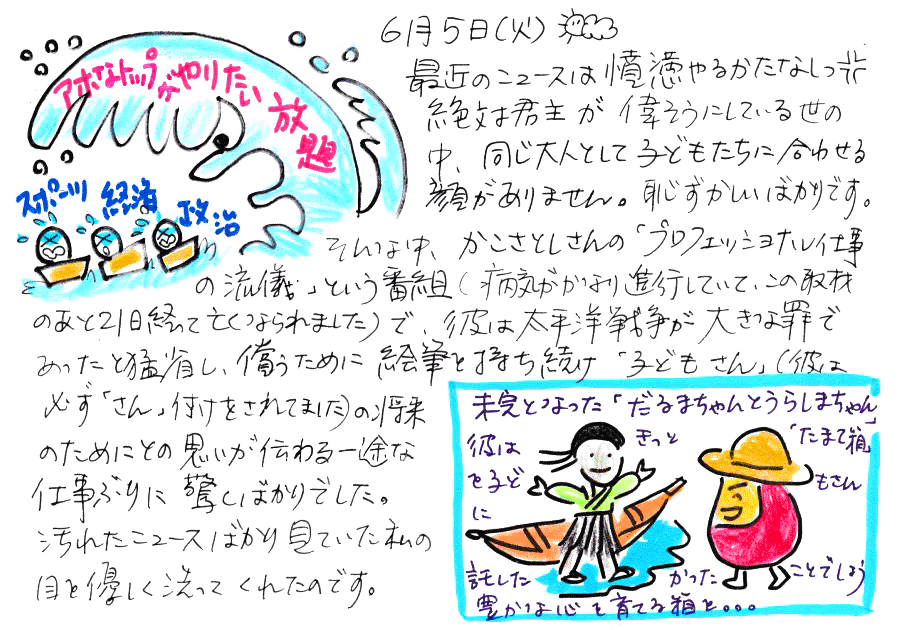 6月5日(火)
アホなトップがやりたい放題
スポーツ 経済 政治
最近のニュースは憤懣やるかたなしっ
絶対君主が偉そうにしている世の
中、同じ大人として子どもたちに合わせる
顔がありません。恥ずかしいばかりです。
そんな中、かこさとしさんの「プロフェッショナル仕事
の流儀」という番組(病気がかなり進行していて、この取材
のあと21日経って亡くなられました)で、彼は太平洋戦争が大きな罪で
あったと猛省し、償うために絵筆を持ち続け「子どもさん」(彼は
必ず「さん」付けをされてました)の将来
のためにとの思いが伝わる一途な
仕事ぶりに驚くばかりでした。
汚れたニュースばかり見ていた私の
目を優しく洗ってくれたのです。
未完となった「だるまちゃんとうらしまちゃん」
彼は きっと 「たまて箱」
を子ど もさん
に
託した かった ことでしょう
豊かな心を育てる箱を。。。